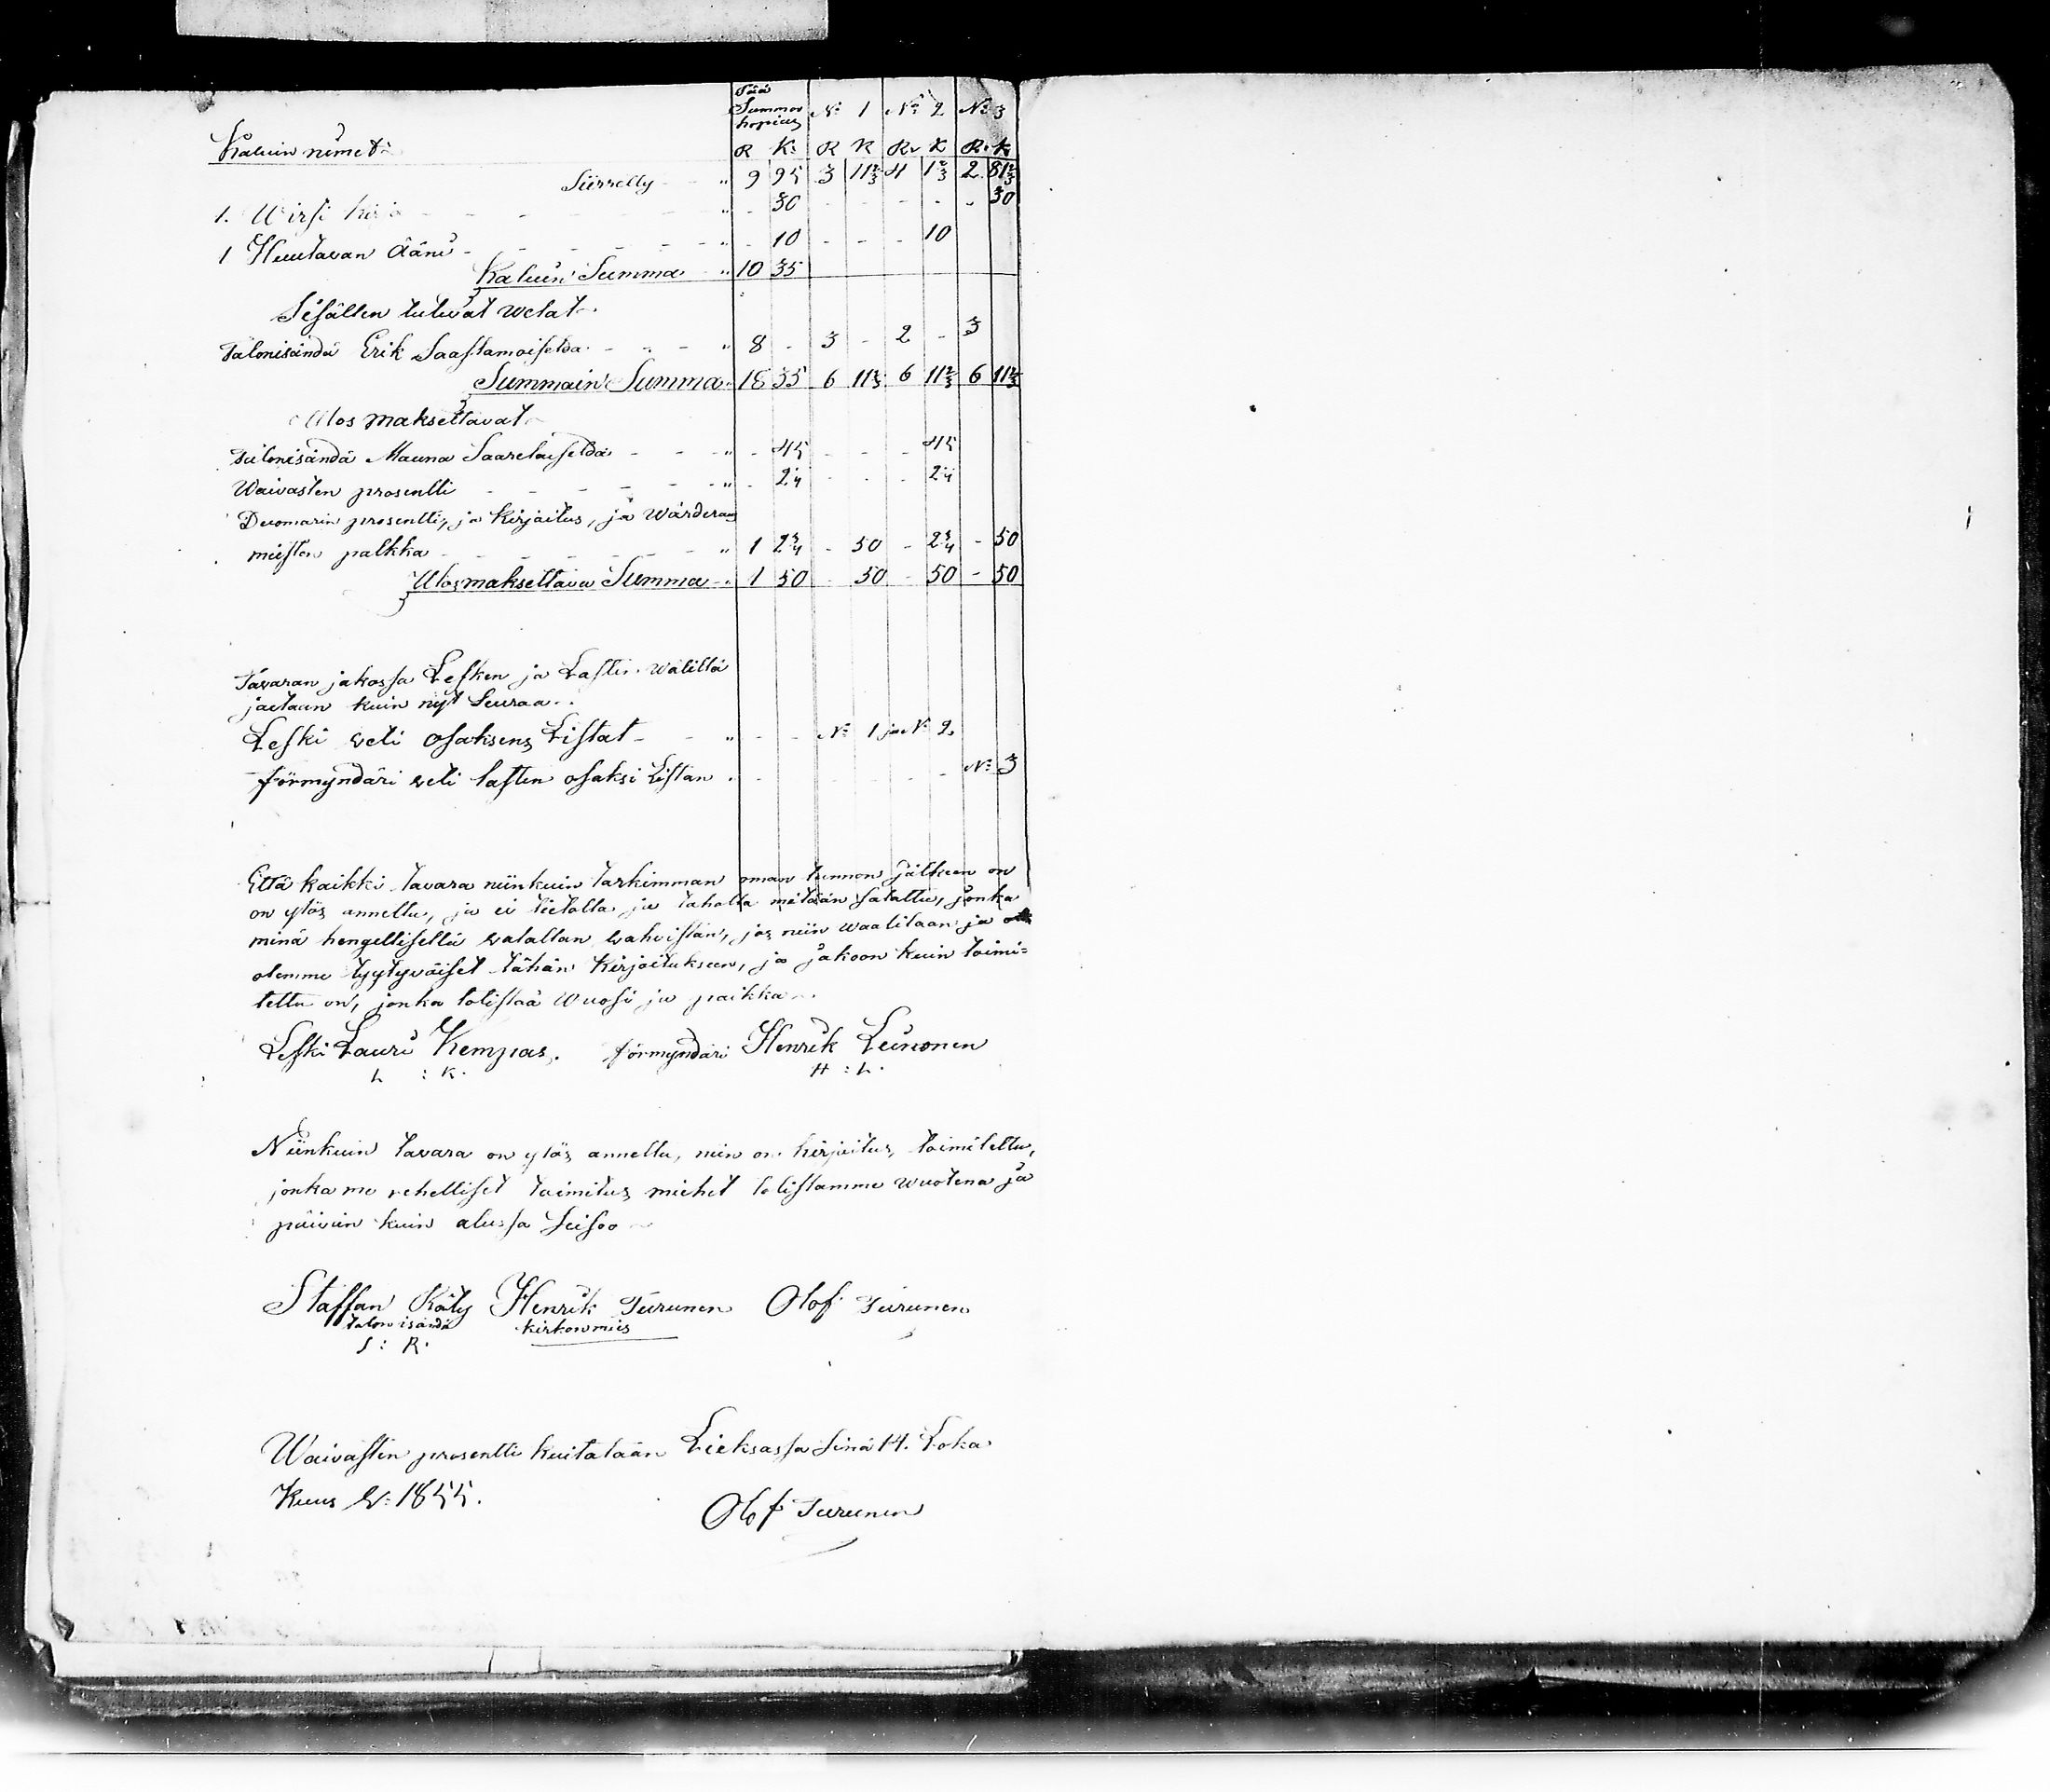 Pää
Summa
hopias N:o 1 N:o 2 N:o 3
Kaluin nimet R K: R K R K R. K
Siirretty - - " 9 95 3 11 2/3 4 1 2/3 2 81 2/3
1. Wirsi kirja - - - - - " - 30 - - - - - 30
1 Huutavan ääni - - - - - - " - 10 - - - 10
Kaluin Summa - " 10 35
Sisällen tulevat welat
Talonisändä Erik Saastamoiselda - - - " 8 - 3 - 2 - 3
Summain Summa " 18 35 6 11 2/3 6 11 2/3 6 11 2/3
Ulos maksettavat
Talonisändä Mauna Saarelaiselda - - - " - 45 - - - 45
Waivasten prosentti - - - - - " - 2 1/4 - - - 2 1/4
Duomarin prosentti, ja kirjaitus, ja Wärderaus
miesten palkka - - - - - - " 1 2 3/4 - 50 - 2 3/4 - 50
Ulosmaksettava Summa - " 1 50 - 50 - 50 - 50
Tavaran jakossa Lesken ja Lasten wälillä
jaetaan kuin nyt Seuraa.
Leski veti osaksens Listat - - " - - N:o 1 ja N:o 2.
förmyndäri veti lasten osaksi Listan - - - - N:o 3
Että kaikki tavara niinkuin tarkimman oman tunnon jälkeen on
on ylös annettu, ja ei tietolla ja taholla mitään salattu, jonka
minä hengellisellä valallan vahvistan, jos niin waaditaan ja
olemme tyytyväiset tähän kirjoitukseen, ja jakoon kuin toimi=
tettu on, jonka todistaa wuosi ja paikka.
Leski Lauri Kempas. förmyndäri Henrik Leinonen
L : K. H : L.
Niinkuin tavara on ylös annettu, niin on kirjoitus toimitettu,
jonka me rehelliset toimitus miehet todistamme wuotena ja
päivän kuin alussa Seisoo
Staffan Räty Henrik Turunen Olof Turunen
talonisändä kirkonmies
S : R.
Waivasten prosentti kuitataan Lieksassa Sinä 14. Loka
Kuus W: 1855.
Olof Turunen